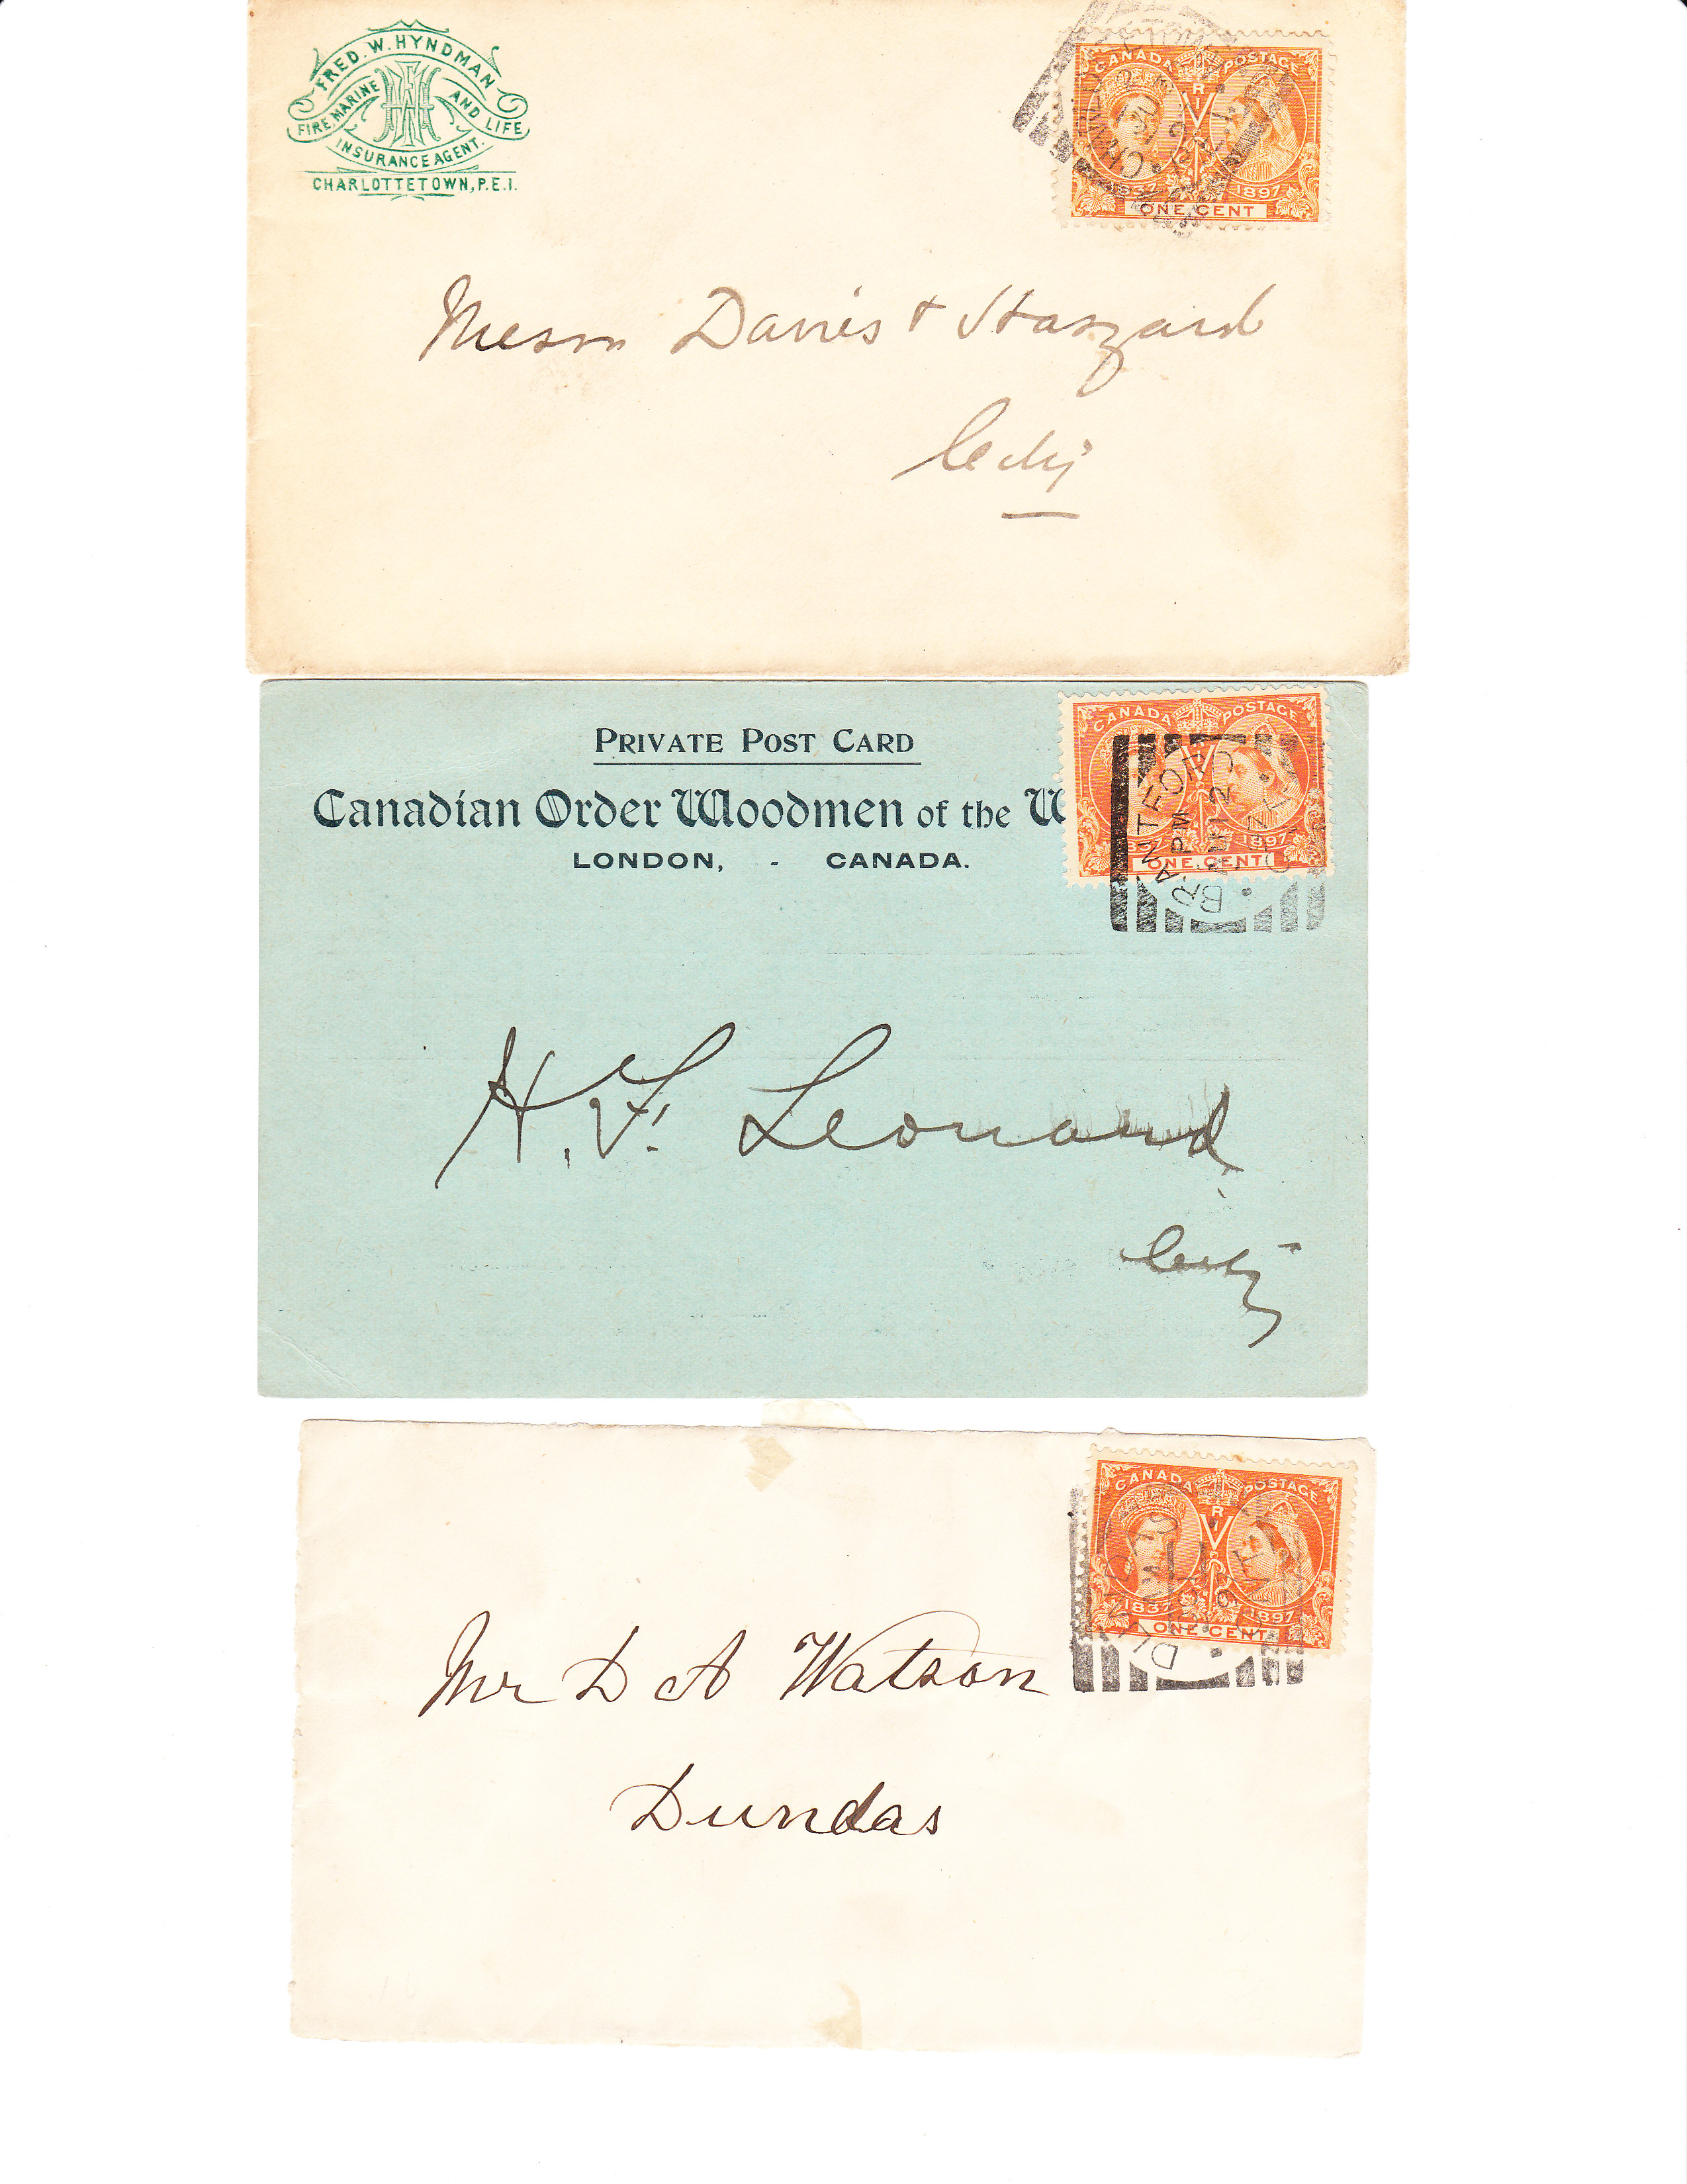 FRED. W. HYNDMAN
FIRE, MARINE AND LIFE
INSURANCE AGENT.
CHARLOTTETOWN, P.E.I.
CANADA POSTAGE
V R I
1837 1897
ONE CENT
Messrs Davies & Haszard
City
PRIVATE POST CARD
Canadian Order Woodmen of the W
LONDON, - CANADA.
CANADA POSTAGE
1897
ONE CENT
BRANTFORD
PM
12
97
H. F. Leonard
City
CANADA POSTAGE
V R I
1837 1897
ONE CENT
DUNDAS
Mr D A Watson
Dundas